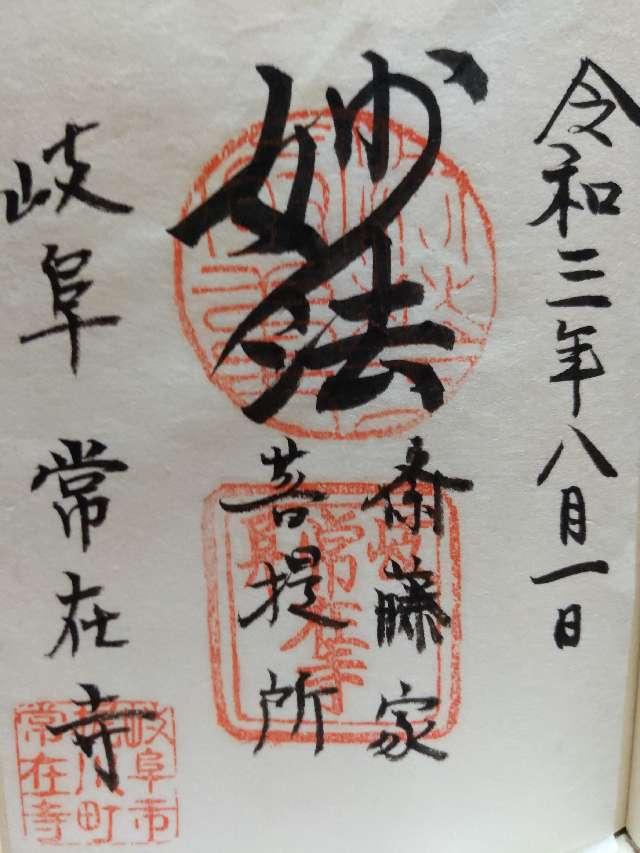 令和三年八月一日
妙法
斎藤家
菩提所
岐阜 常在寺
岐阜市
町
常在寺